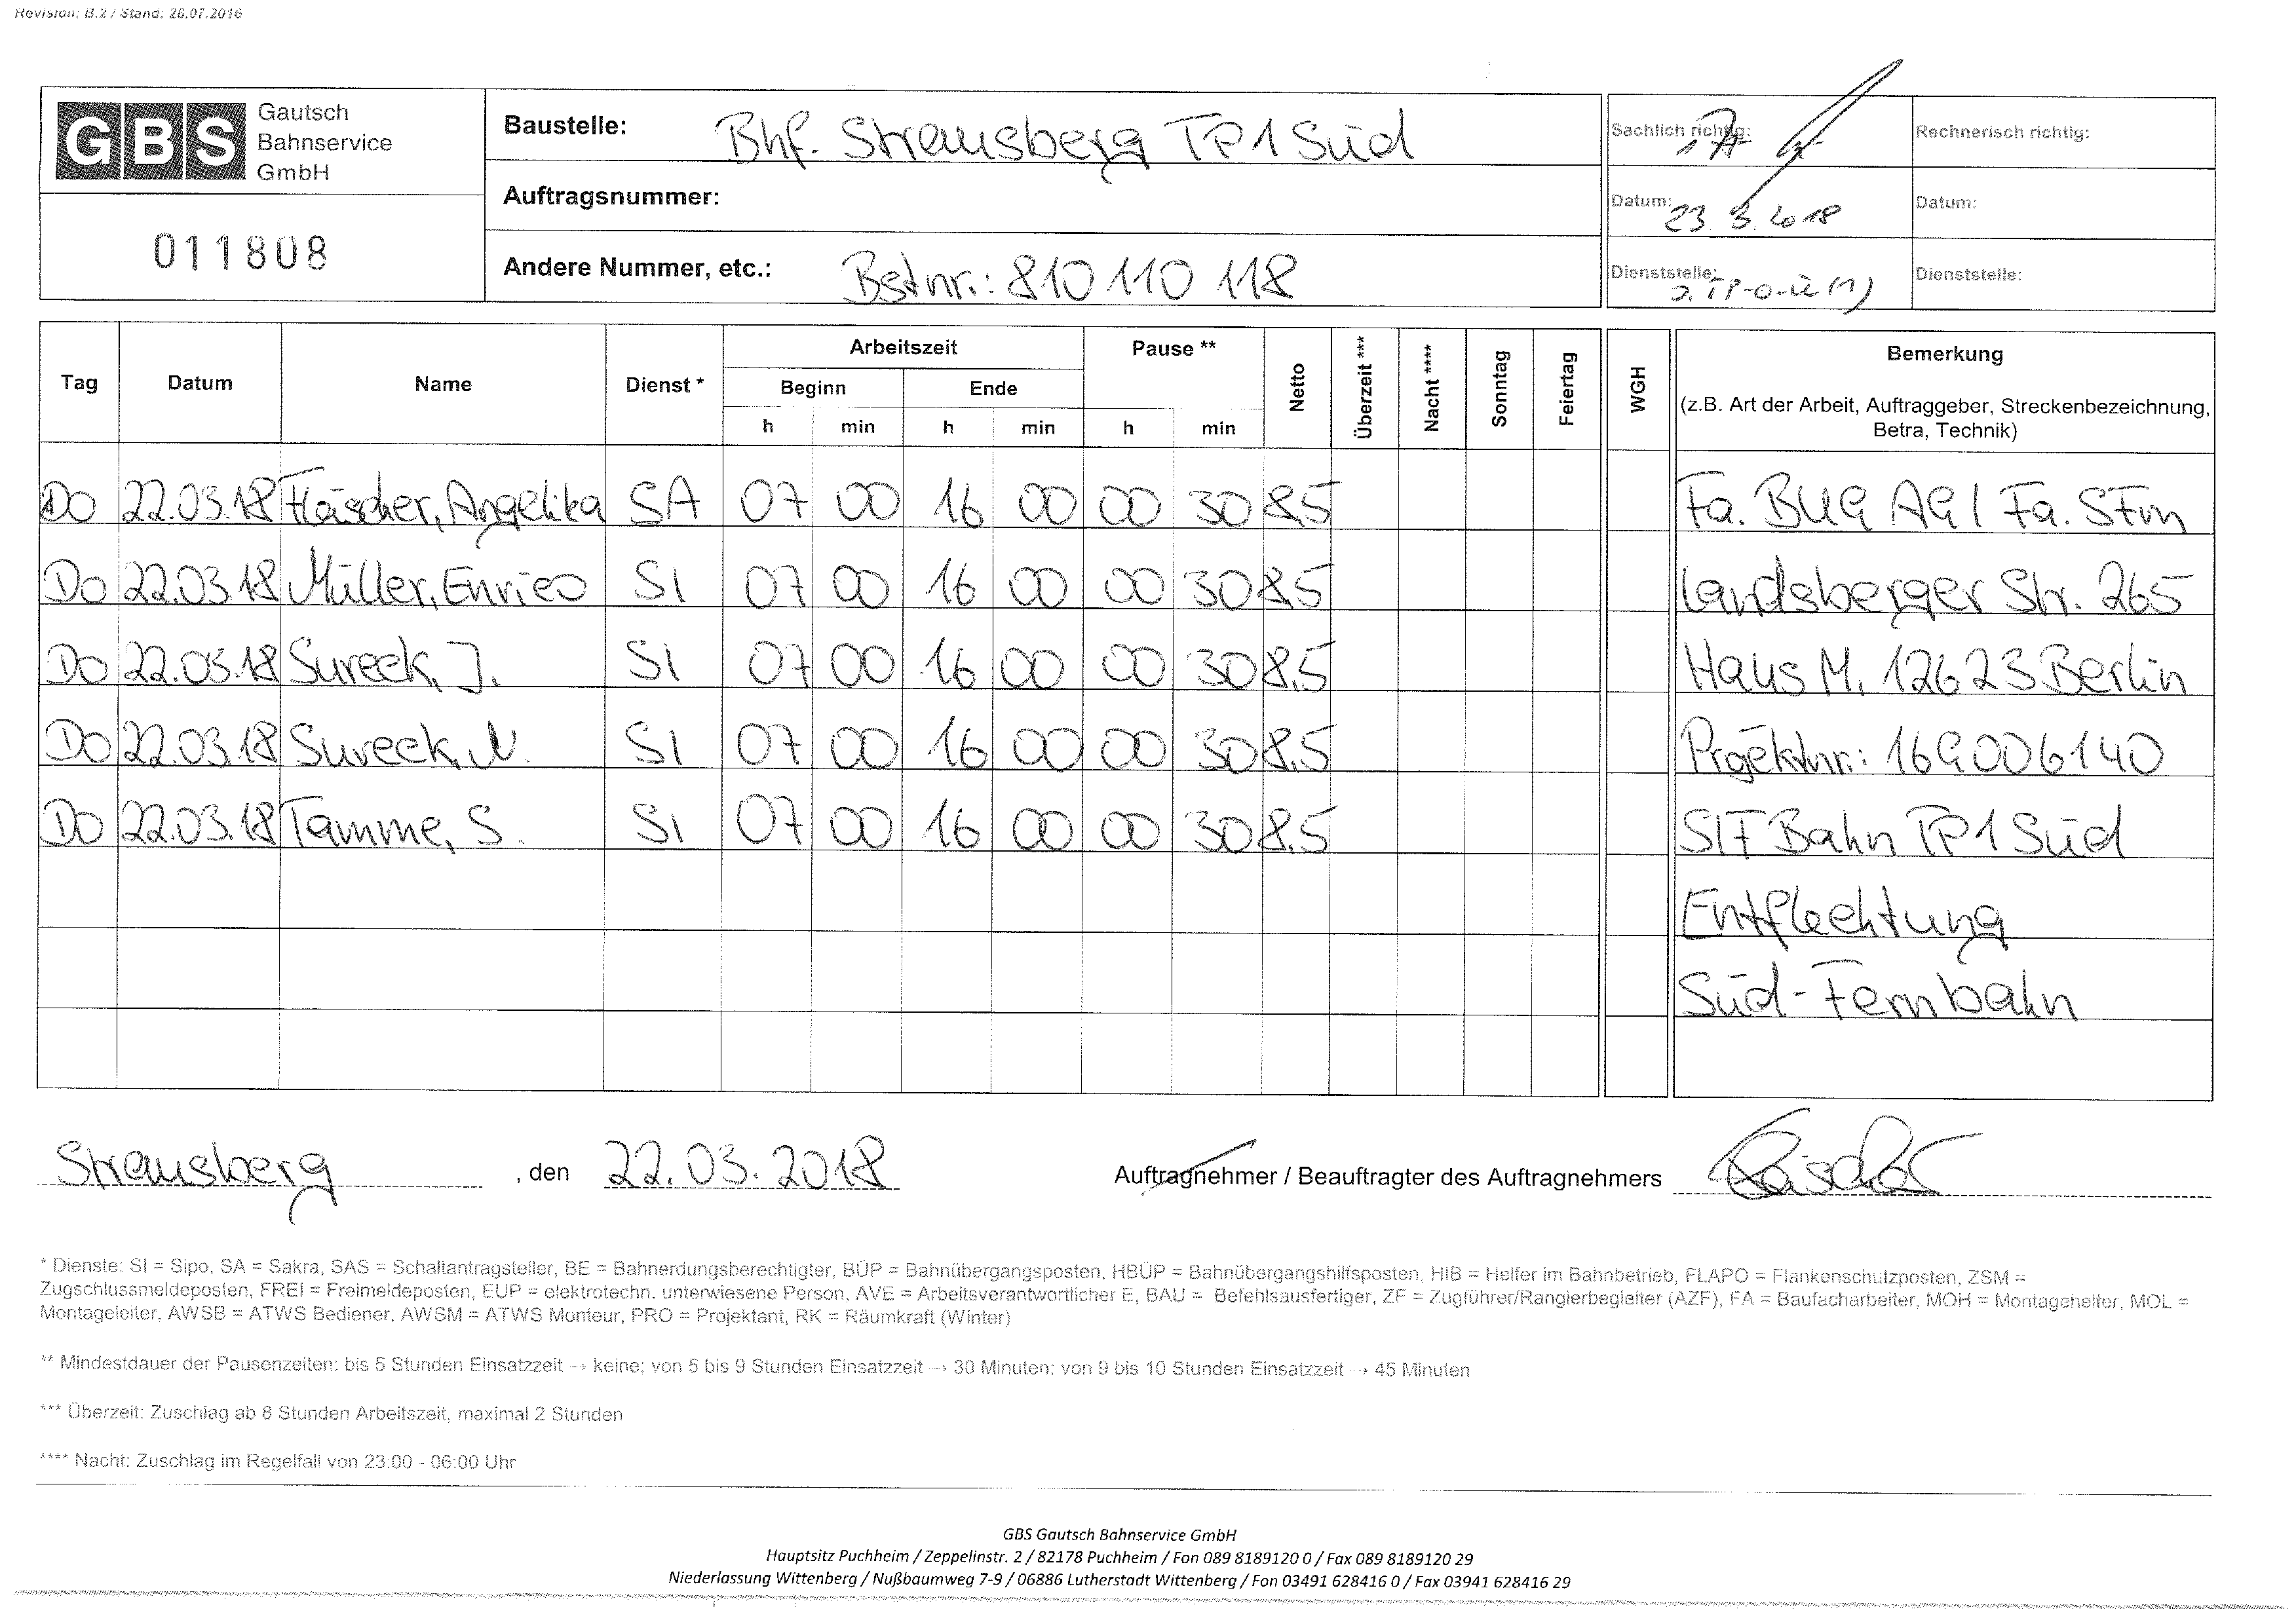 Revision: B.2 / Stand: 26.07.2016
GBS Gautsch
Bahnservice
GmbH
011808
Baustelle: Bhf. Strausberg TP1 Süd
Auftragsnummer:
Andere Nummer, etc.: Bstnr.: 810 110 118
Sachlich richtig:
Rechnerisch richtig:
Datum: 23.3.2018
Datum:
Dienststelle:
Dienststelle:
Tag Datum Name Dienst * Arbeitszeit Pause ** Netto Überzeit *** Nacht **** Sonntag Feiertag WGH Bemerkung
Beginn Ende
(z.B. Art der Arbeit, Auftraggeber, Streckenbezeichnung,
Betra, Technik)
h min h min h min
Do 22.03.18 Fläscher, Angelika SA 07 00 16 00 00 30 8,5 Fa. BUG AG / Fa. STm
Do 22.03.18 Müller, Enrico SI 07 00 16 00 00 30 8,5 Landsberger Str. 265
Do 22.03.18 Sureck, J. SI 07 00 16 00 00 30 8,5 Haus M, 12623 Berlin
Do 22.03.18 Sureck, N. SI 07 00 16 00 00 30 8,5 Projektnr.: 169006140
Do 22.03.18 Tamme, S. SI 07 00 16 00 00 30 8,5 SIF Bahn TP1 Süd
Entflechtung
Süd-Fernbahn
Strausberg, den 22.03.2018 Auftragnehmer / Beauftragter des Auftragnehmers
* Dienste: SI = Sipo, SA = Sakra, SAS = Schaltantragsteller, BE = Bahnerdungsberechtigter, BÜP = Bahnübergangsposten, HBÜP = Bahnübergangshilfsposten, HIB = Helfer im Bahnbetrieb, FLAPO = Flankenschutzposten, ZSM =
Zugschlussmeldeposten, FREI = Freimeldeposten, EUP = elektrotechn. unterwiesene Person, AVE = Arbeitsverantwortlicher E, BAU = Befehlsausfertiger, ZF = Zugführer/Rangierbegleiter (AZF), FA = Baufacharbeiter, MOH = Montagehelfer, MOL =
Montageleiter, AWSB = ATWS Bediener, AWSM = ATWS Monteur, PRO = Projektant, RK = Räumkraft (Winter)
** Mindestdauer der Pausenzeiten: bis 5 Stunden Einsatzzeit → keine; von 5 bis 9 Stunden Einsatzzeit → 30 Minuten; von 9 bis 10 Stunden Einsatzzeit → 45 Minuten
*** Überzeit: Zuschlag ab 8 Stunden Arbeitszeit, maximal 2 Stunden
**** Nacht: Zuschlag im Regelfall von 23:00 - 06:00 Uhr
GBS Gautsch Bahnservice GmbH
Hauptsitz Puchheim / Zeppelinstr. 2 / 82178 Puchheim / Fon 089 8189120 0 / Fax 089 8189120 29
Niederlassung Wittenberg / Nußbaumweg 7-9 / 06886 Lutherstadt Wittenberg / Fon 03491 628416 0 / Fax 03941 628416 29